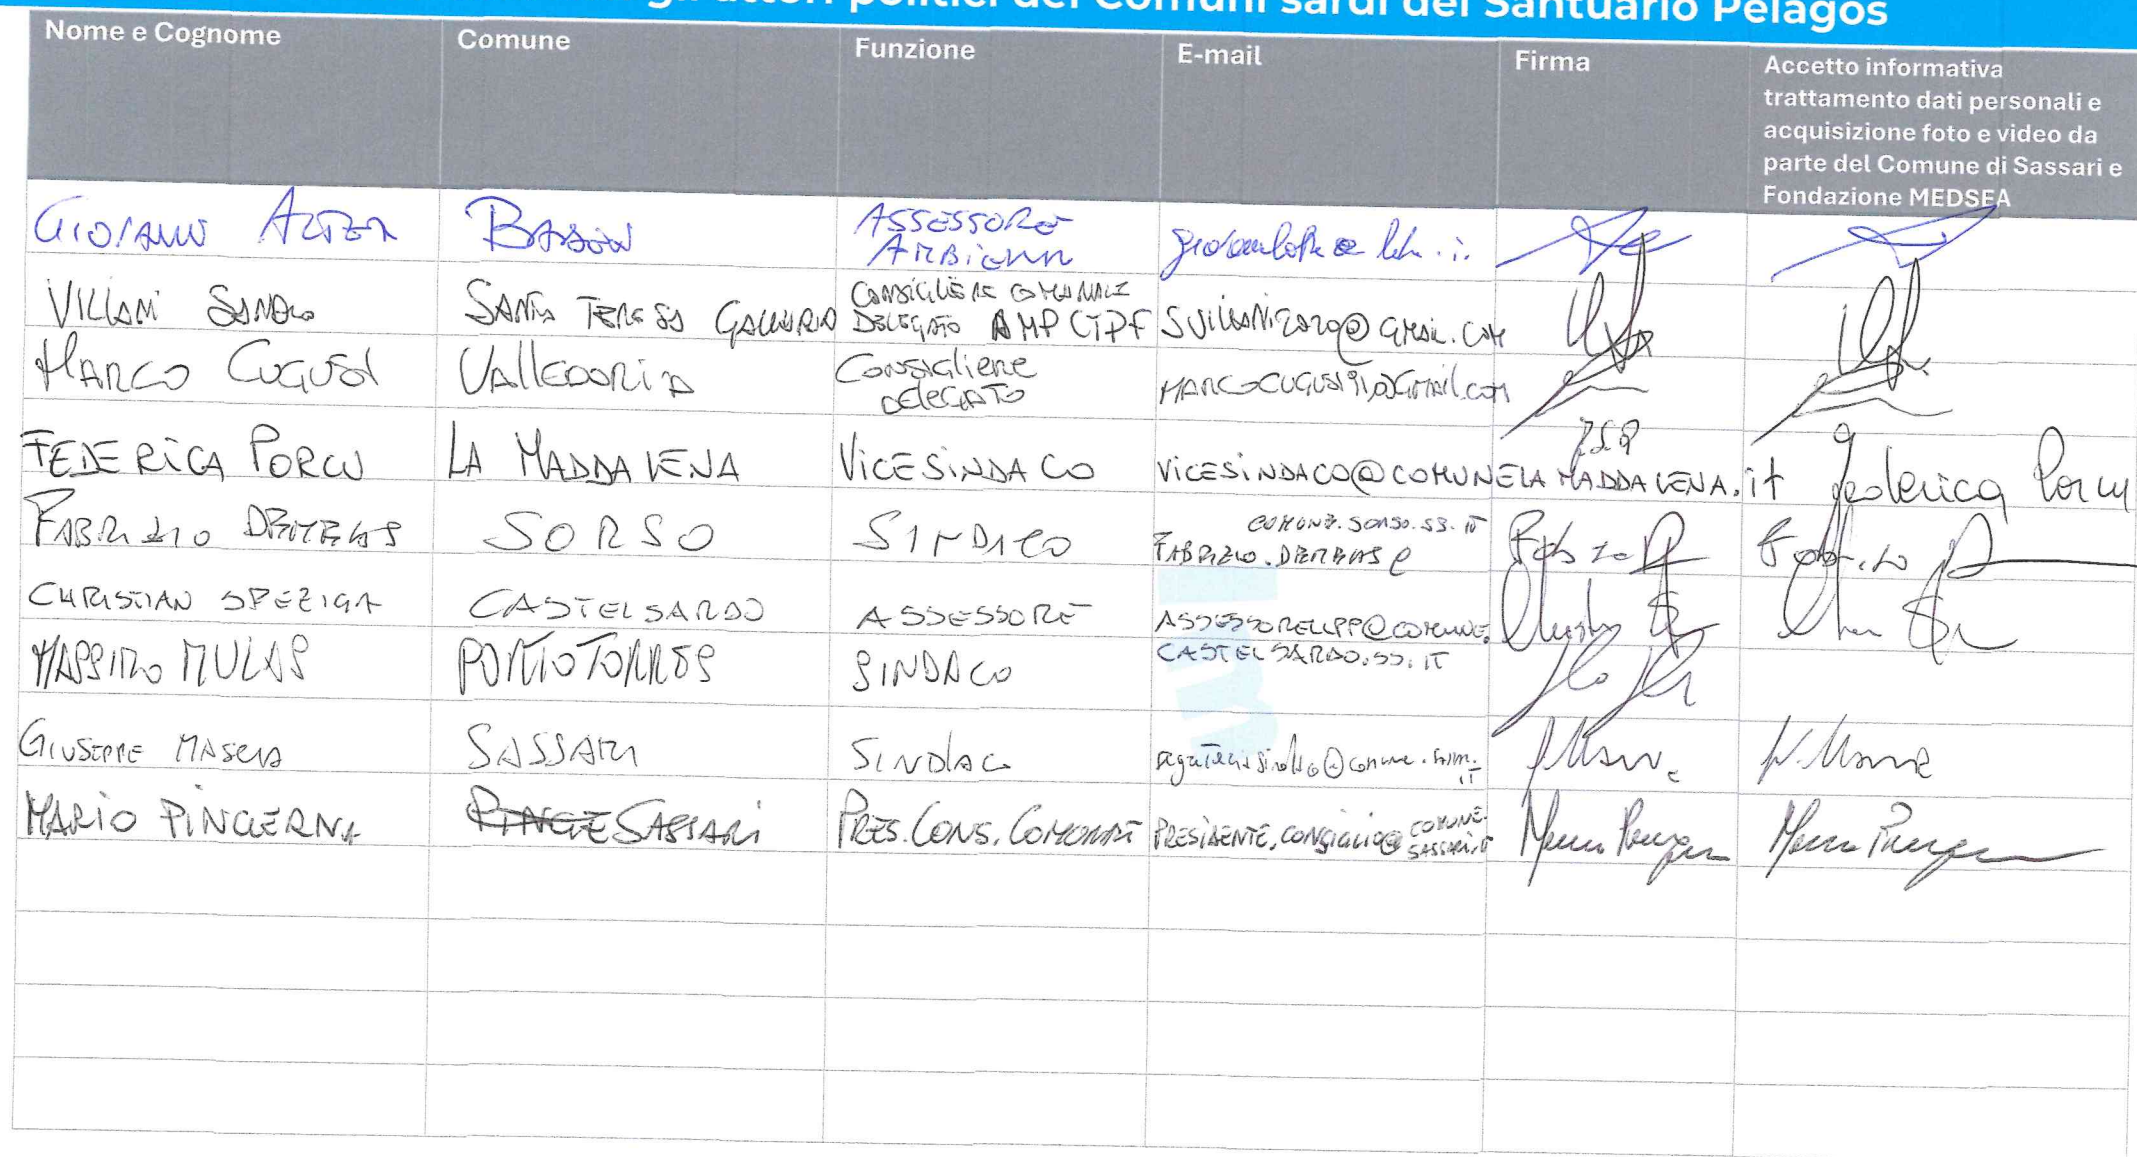 gli attori politici dei Comuni sardi del Santuario Pelagos
Nome e Cognome
Comune
Funzione
E-mail
Firma
Accetto informativa
trattamento dati personali e
acquisizione foto e video da
parte del Comune di Sassari e
Fondazione MEDSEA
ASSESSORE
VILLANI SANDRO
SANTA TERESA GALLURA
CONSIGLIERE COMUNALE
DELEGATO AMP CTPF
SVILLANI2020@GMAIL.COM
MARCO CUGUSI
VALLEDORIA
Consigliere
DELEGATO
MARCOCUGUSI91@GMAIL.COM
FEDERICA PORCU
LA MADDALENA
VICESINDACO
VICESINDACO@COMUNELAMADDALENA.it
Federica Porcu
FABRIZIO DEMELAS
SORSO
SINDACO
COMUNE.SORSO.SS.IT
FABRIZIO.DEMELAS@
CHRISTIAN SPEZIGA
CASTELSARDO
ASSESSORE
ASSESSORELLPP@COMUNE.
CASTELSARDO.SS.IT
MASSIMO MULAS
PORTO TORRES
SINDACO
GIUSEPPE MASCIA
SASSARI
SINDACO
MARIO PINGERNA
SASSARI
PRES. CONS. COMUNALE
PRESIDENTE.CONSIGLIO@COMUNE.
SASSARI.IT